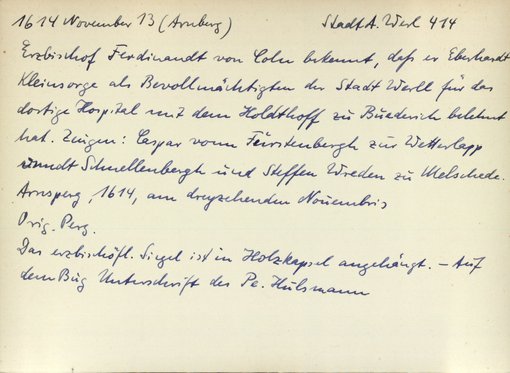 1614 November 13 (Arnsberg) Stadt A. Werl 414
Erzbischof Ferdinandt von Coln bekennt, daß er Eberhardt
Kleinsorge als Bevollmächtigten der Stadt Werll für das
dortige Hospital mit dem Holdthoff zu Büederich belehnt
hat. Zeugen: Caspar vonn Fürstenbergh zur Wetterlapp
unndt Schnellenbergh und Steffen Wreden zu Melschede.
Arnsperg, 1614, am dreyzehenden Nouembris
Orig. Perg.
Das erzbischöfl. Siegel ist in Holzkapsel angehängt. – Auf
dem Bug Unterschrift des Pe. Hülsmann